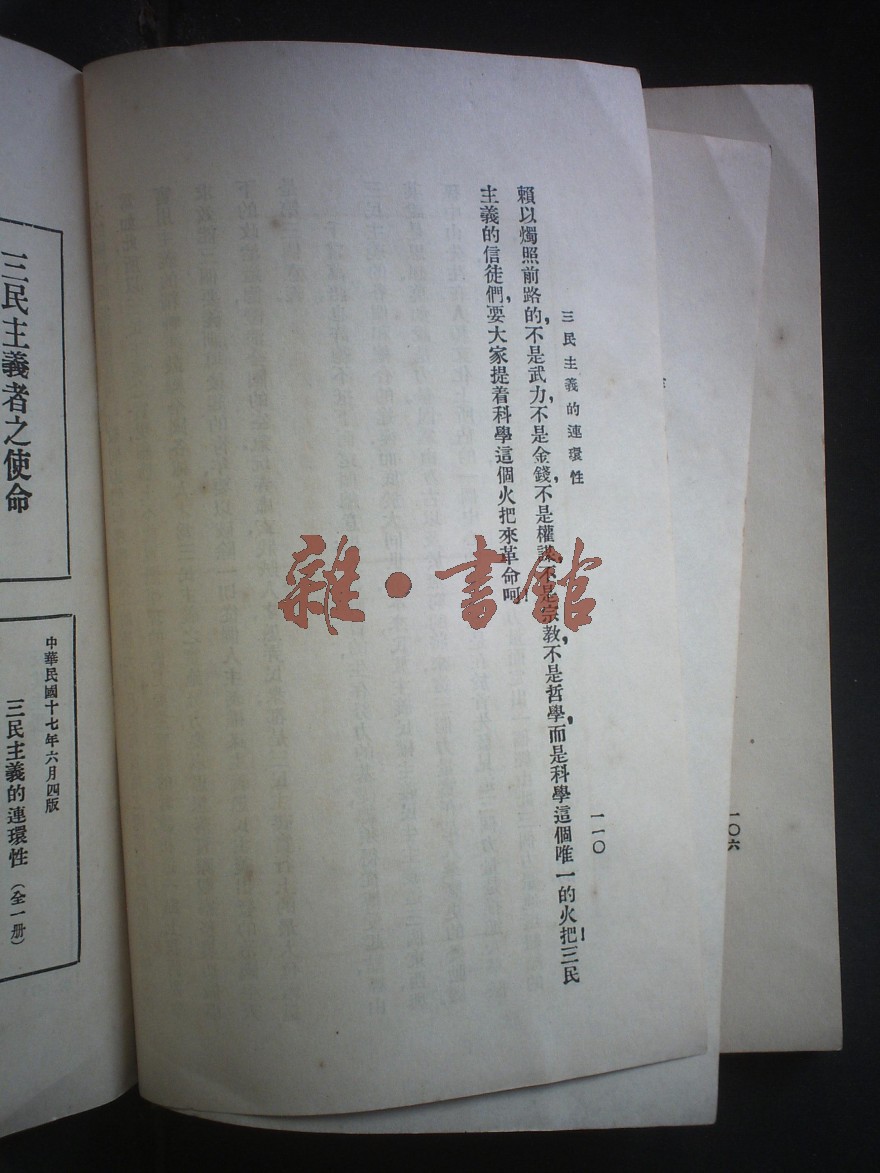 三民主義的連環性
一一〇
賴以燭照前路的,不是武力,不是金錢,不是權謀,不是宗教,不是哲學,而是科學這個唯一的火把!三民
主義的信徒們,要大家提着科學這個火把來革命呵!
一〇六
雜·書館
三民主義者之使命
中華民國十七年六月四版
三民主義的連環性(全一册)